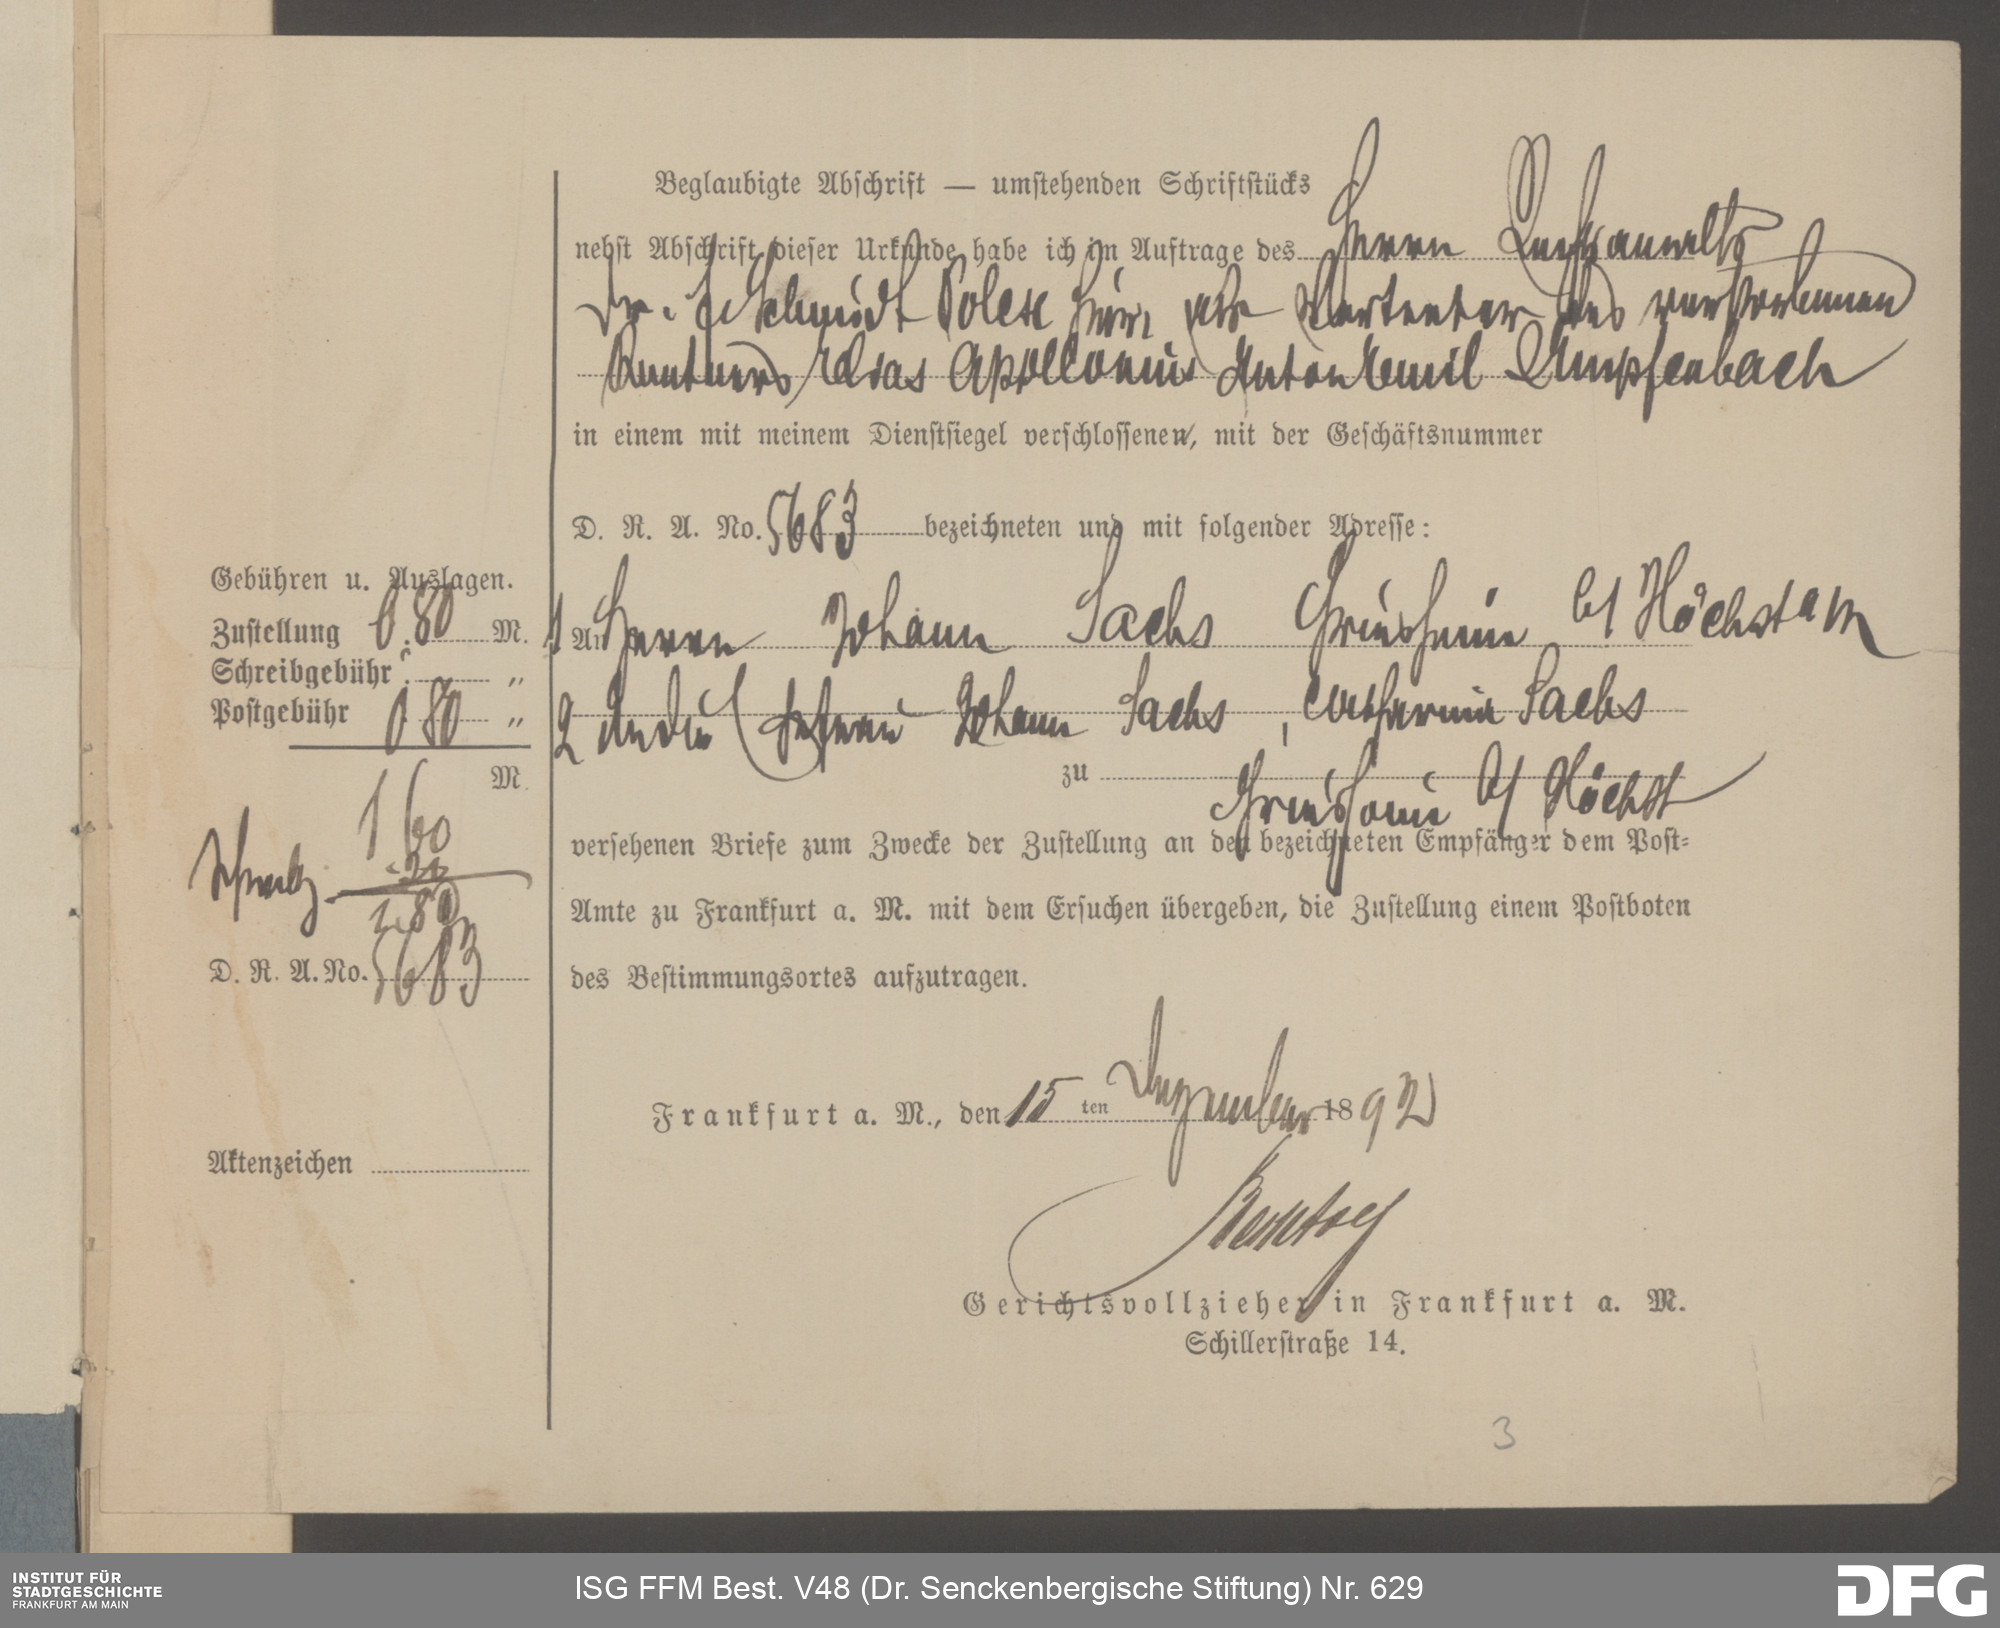 Beglaubigte Abschrift — umstehenden Schriftstücks
nebst Abschrift dieser Urkunde habe ich im Auftrage des Herrn Rechtsanwalts
Dr. Schmidt Polex hier als Vertreter des verstorbenen
Rentners Elias Apollonius Anton Emil Umpfenbach
in einem mit meinem Dienstsiegel verschlossenen, mit der Geschäftsnummer
D. R. A. No. 5683 bezeichneten und mit folgender Adresse:
1 An Herrn Johann Sachs Griesheim b/ Höchst a M
2 An die Ehefrau Johann Sachs, Catharina Sachs
zu Griesheim b/ Höchst
versehenen Briefe zum Zwecke der Zustellung an den bezeichneten Empfänger dem Post-
Amte zu Frankfurt a. M. mit dem Ersuchen übergeben, die Zustellung einem Postboten
des Bestimmungsortes aufzutragen.
Frankfurt a. M., den 15 ten Dezember 1892
Gerichtsvollzieher in Frankfurt a. M.
Schillerstraße 14.
Gebühren u. Auslagen.
Zustellung 0.80 M.
Schreibgebühr . „
Postgebühr 0 80 „
M.
1 60
1.80
D. R. A. No. 5683
Aktenzeichen
3
INSTITUT FÜR
STADTGESCHICHTE
FRANKFURT AM MAIN
ISG FFM Best. V48 (Dr. Senckenbergische Stiftung) Nr. 629
DFG